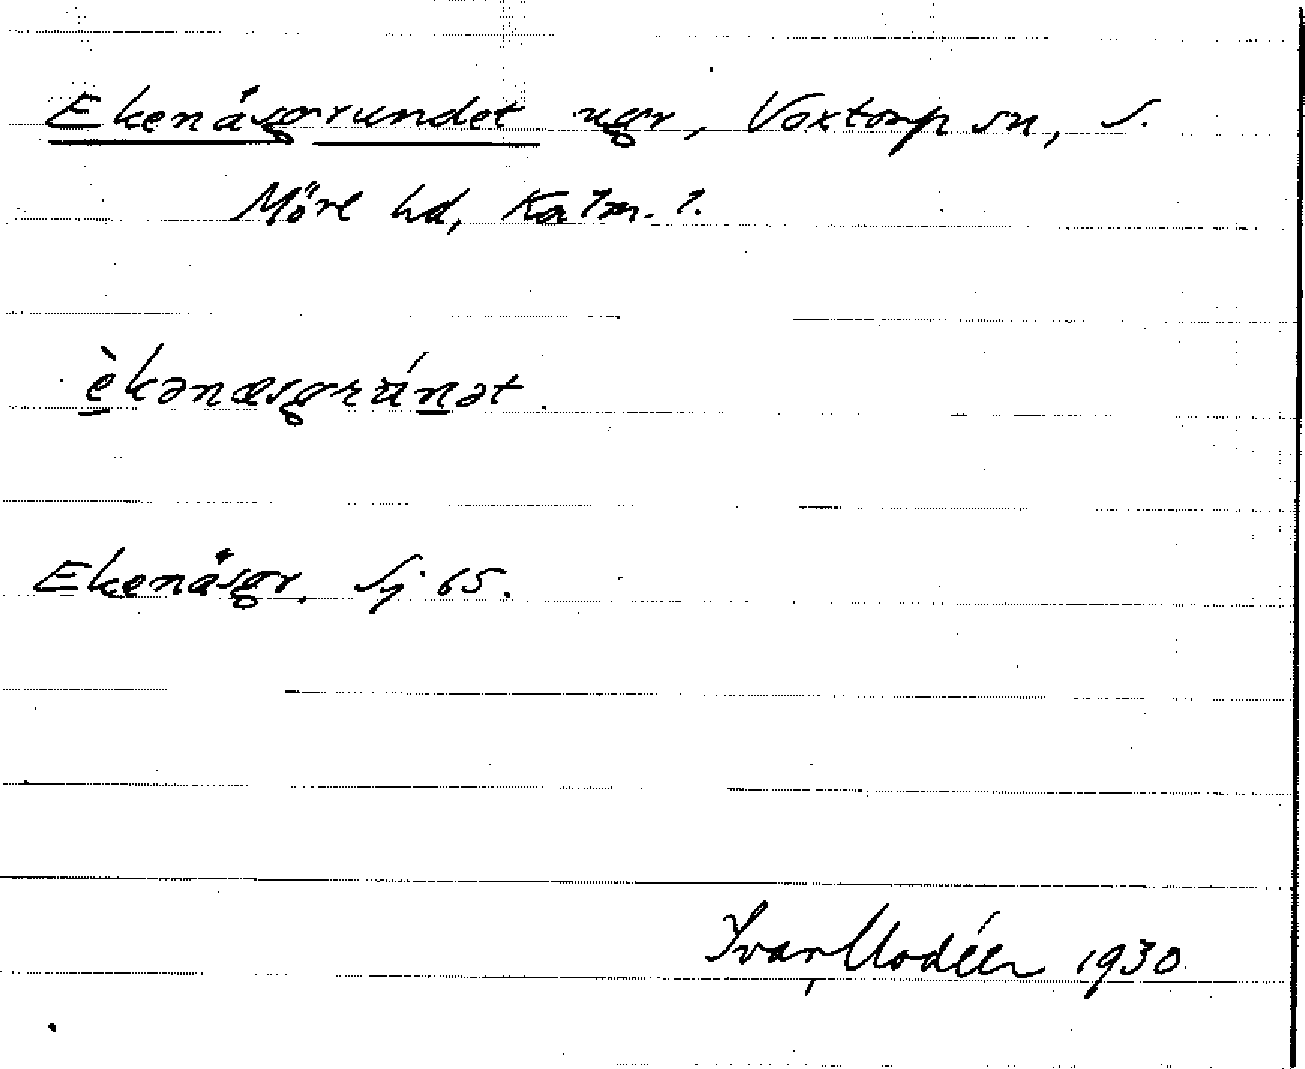 Ekenåsgrundet ugr, Voxtorp sn, S.
Möre hd, Kalm. l.
èkənæsgrúnət
Ekenåsgr. Sj 65.
Ivar Modéer 1930